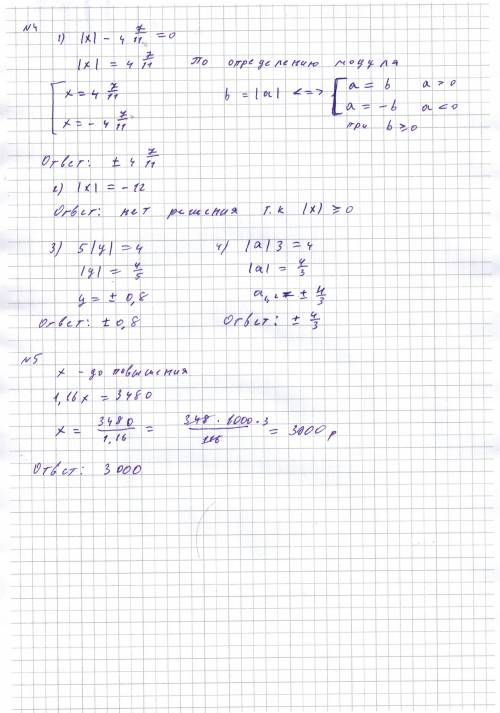 №4
1) |x| - 4 7/11 = 0
|x| = 4 7/11 По определению модула
[ x = 4 7/11
x = - 4 7/11
b = |a| <=> [ a = b a > 0
a = -b a < 0
при b ≥ 0
Ответ: ± 4 7/11
2) |x| = -12
Ответ: нет решения т.к |x| ≥ 0
3) 5|y| = 4
|y| = 4/5
y = ± 0,8
Ответ: ± 0,8
4) |a| 3 = 4
|a| = 4/3
a = ± 4/3
Ответ: ± 4/3
№5
x - до повышения
1,16x = 3480
x = 3480/1,16 = 348 · 1000 · 3/116 = 3000 р
Ответ: 3000